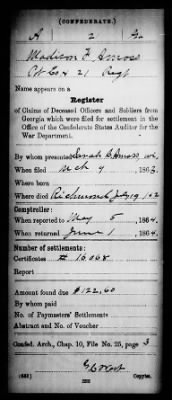 (CONFEDERATE.)
A 2 Ga
Madison F Amoss
Pvt Co 21 Regt
Name appears on a
Register
of Claims of Deceased Officers and Soldiers from
Georgia which were filed for settlement in the
Office of the Confederate States Auditor for the
War Department.
By whom presented Sarah Amoss, wid.
When filed Mch 9, 1863
Where born
Where died Richmond July 19 162
Comptroller:
When reported to May 5, 1864.
When returned June 1, 1864.
Number of settlements:
Certificates # 16068
Report
Amount found due $122.60
By whom paid
No. of Paymasters' Settlements
Abstract and No. of Voucher
Confed. Arch., Chap. 10, File No. 25, page 3
(651)
Copyist.